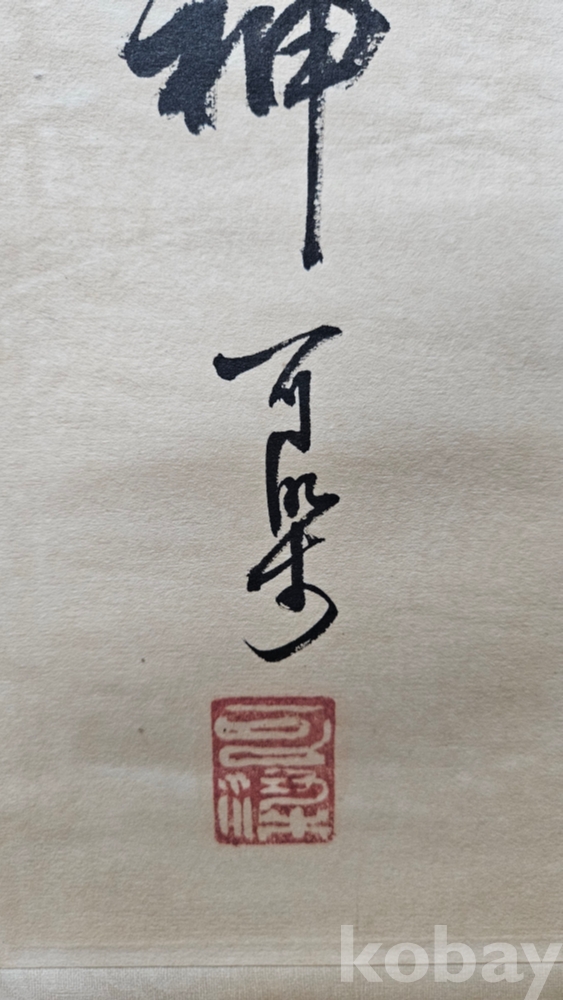 神
可染
可染
kobay